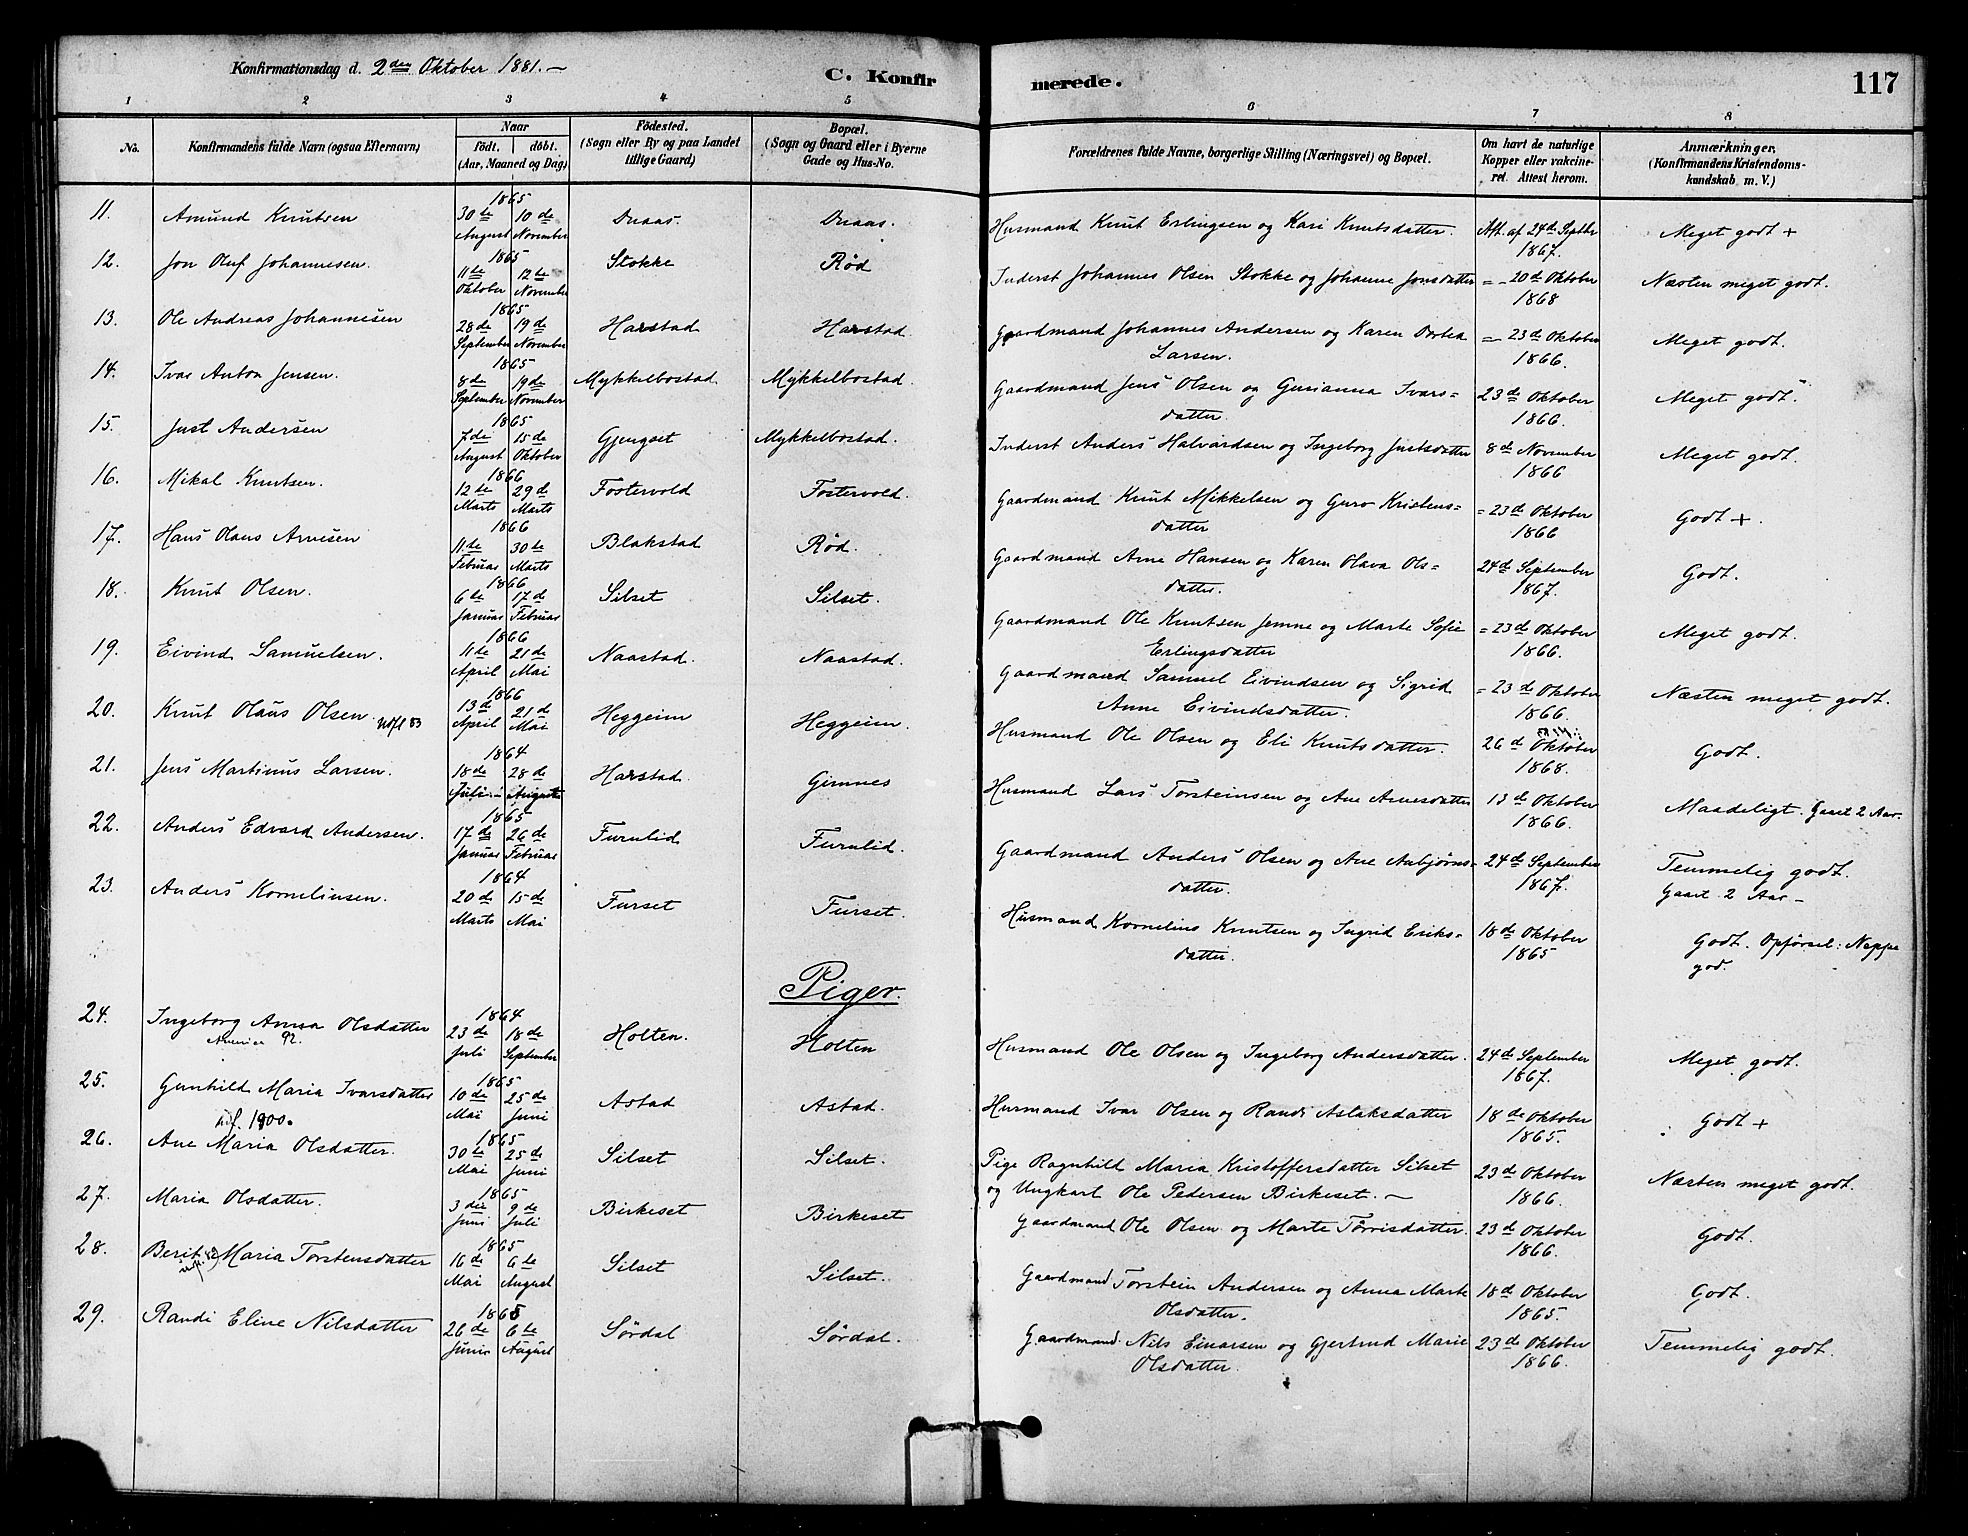 Konfirmationsdag d. 2den Oktober 1881.–
C. Konfirmerede.
117
1 2 3 4 5 6 7 8
No.
Konfirmandens fulde Navn (ogsaa Efternavn)
Naar
födt. döbt.
(Aar, Maaned og Dag)
Födested.
(Sogn eller By og paa Landet
tillige Gaard)
Bopæl.
(Sogn og Gaard eller i Byerne
Gade og Hus-No.
Forældrenes fulde Navne, borgerlige Stilling (Næringsvei) og Bopæl.
Om havt de naturlige
Kopper eller vakcine-
ret. Attest herom.
Anmærkninger,
(Konfirmandens Kristendoms-
kundskab m. V.)
1865
11. Amund Knutsen 30te 10de Draas. Draas. Husmand Knut Erlingsen og Kari Knutsdatter. Att. af 24de Septbr Meget godt +
August November 1867.
1865
12. Jon Oluf Johannesen. 11te 12te Stokke Rød Inderst Johannes Olsen Stokke og Johanne Jonsdatter = – 20de Oktober Næsten meget godt.
Oktober November 1868
1865
13. Ole Andreas Johannesen 28de 19de Harstad Harstad. Gaardmand Johannes Andersen og Karen Dortea = 23de Oktober Meget godt.
September November Larsen. 1866.
1865
14. Ivar Anton Jensen. 8de 19de Mykkelbostad Mykkelbostad. Gaardmand Jens Olsen og Gurianna Ivars= 23de Oktober Meget godt.
September November datter. 1866.
1865
15. Just Andersen 7de 15de Gjengset Mykkelbostad. Inderst Anders Halvardsen og Ingeborg Justsdatter 8de November Meget godt.
August Oktober 1866
1866
16. Mikal Knutsen. 12de 29de Fostervold Fostervold. Gaardmand Knut Mikkelsen og Guro Kristens= = 23de Oktober Godt +.
Marts Marts datter 1866
1866
17. Hans Olaus Arnesen 11te 30te Blakstad Rød. Gaardmand Arne Hansen og Karen Olava Ols= 24de September Godt.
Februar Marts datter. 1867.
1866
18. Knut Olsen. 6te 17de Silset Silset. Gaardmand Ole Knutsen Jemne og Marte Sofie = 23de Oktober Meget godt.
Januar Februar Erlingsdatter 1866.
1866
19. Eivind Samuelsen. 11te 21de Naastad. Naastad. Gaardmand Samuel Eivindsen og Sigrid = 23de Oktober Næsten meget godt.
April Mai Anne Eivindsdatter. 1866.
1866
20. Knut Olaus Olsen. 13de 21de Heggeim Heggeim. Husmand Ole Olsen og Eli Knutsdatter. 26de Oktober Godt.
83 April Mai 1868.
1864
21. Jens Martinus Larsen. 18de 28de Harstad. Gimnes Husmand Lars Torsteinsen og Ane Arnesdatter 13de Oktober Maadeligt. Gaaet 2 Aar.
Juli.– August 1866.
1865
22. Anders Edvard Andersen. 17de 26de Furulid Furulid. Gaardmand Anders Olsen og Ane Asbjørns= 24de September Temmelig godt.
Januar Februar datter. 1867. Gaaet 2 Aar –
1864
23. Anders Kornelinsen. 20de 15de Furset Furset. Husmand Kornelius Knutsen og Ingrid Eriks= 18de Oktober Godt. Opførsel: Neppe
Marts Mai datter. 1865 god.
Piger.
1864
24. Ingeborg Anna Olsdatter 23de 18de Holten. Holten Husmand Ole Olsen og Ingeborg Andersdatter. 24de September Meget godt.
Amerika 92. Juli September 1867.
1865
25. Gunhild Maria Ivarsdatter 10de 25de Astad Astad. Husmand Ivar Olsen og Randi Aslaksdatter 18de Oktober Godt +
utf. 1900. Mai Juni 1865.
1865
26. Ane Maria Olsdatter. 30te 25de Silset Silset. Pige Ragnhild Maria Kristoffersdatter Silset 23de Oktober Næsten meget godt.
Mai Juni og Ungkarl Ole Pedersen Birkeset. – 1866.
1865
27. Maria Olsdatter. 3die 9de Birkeset Birkeset Gaardmand Ole Olsen og Marte Tørrisdatter. 23de Oktober Godt.
Juni Juli 1866.
1865
28. Berit Maria Torstensdatter 16de 6te Silset Silset. Gaardmand Torstein Andersen og Anna Marte 18de Oktober Godt.
Mai August Olsdatter. 1865.
1865
29. Randi Eline Nilsdatter 26de 6te Sørdal Sørdal. Gaardmand Nils Einarsen og Gjertrud Marie 23de Oktober Temmelig godt.
Juni August Olsdatter. 1866.